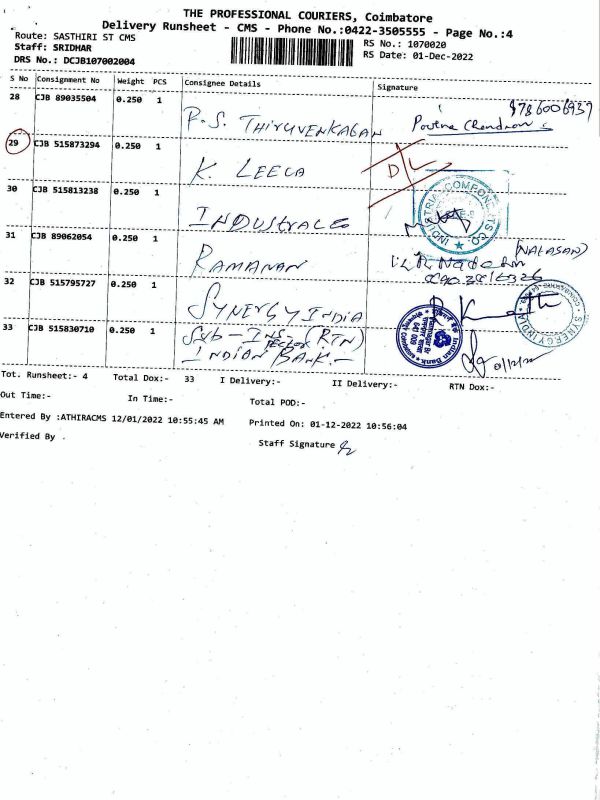 THE PROFESSIONAL COURIERS, Coimbatore
Delivery Runsheet - CMS - Phone No.:0422-3505555 - Page No.:4
Route: SASTHIRI ST CMS
RS No.: 1070020
Staff: SRIDHAR
RS Date: 01-Dec-2022
DRS No.: DCJB107002004
S No Consignment No Weight PCS Consignee Details Signature
28 CJB 89035504 0.250 1
9786006937
P.S. THIRUVENKADAN
29 CJB 515873294 0.250 1
K. LEELA
D/L
30 CJB 515813238 0.250 1
INDUSTRIAL COMPONENTS CO.
31 CJB 89062054 0.250 1
RAMANAN
32 CJB 515795727 0.250 1
SYNERGY INDIA
SYNERGY INDIA
33 CJB 515830710 0.250 1
Sub - Ins- (RTN)
INDIAN BANK.-
Indian Bank
Tot. Runsheet:- 4 Total Dox:- 33 I Delivery:- II Delivery:- RTN Dox:-
Out Time:- In Time:- Total POD:-
Entered By :ATHIRACMS 12/01/2022 10:55:45 AM Printed On: 01-12-2022 10:56:04
Verified By .
Staff Signature